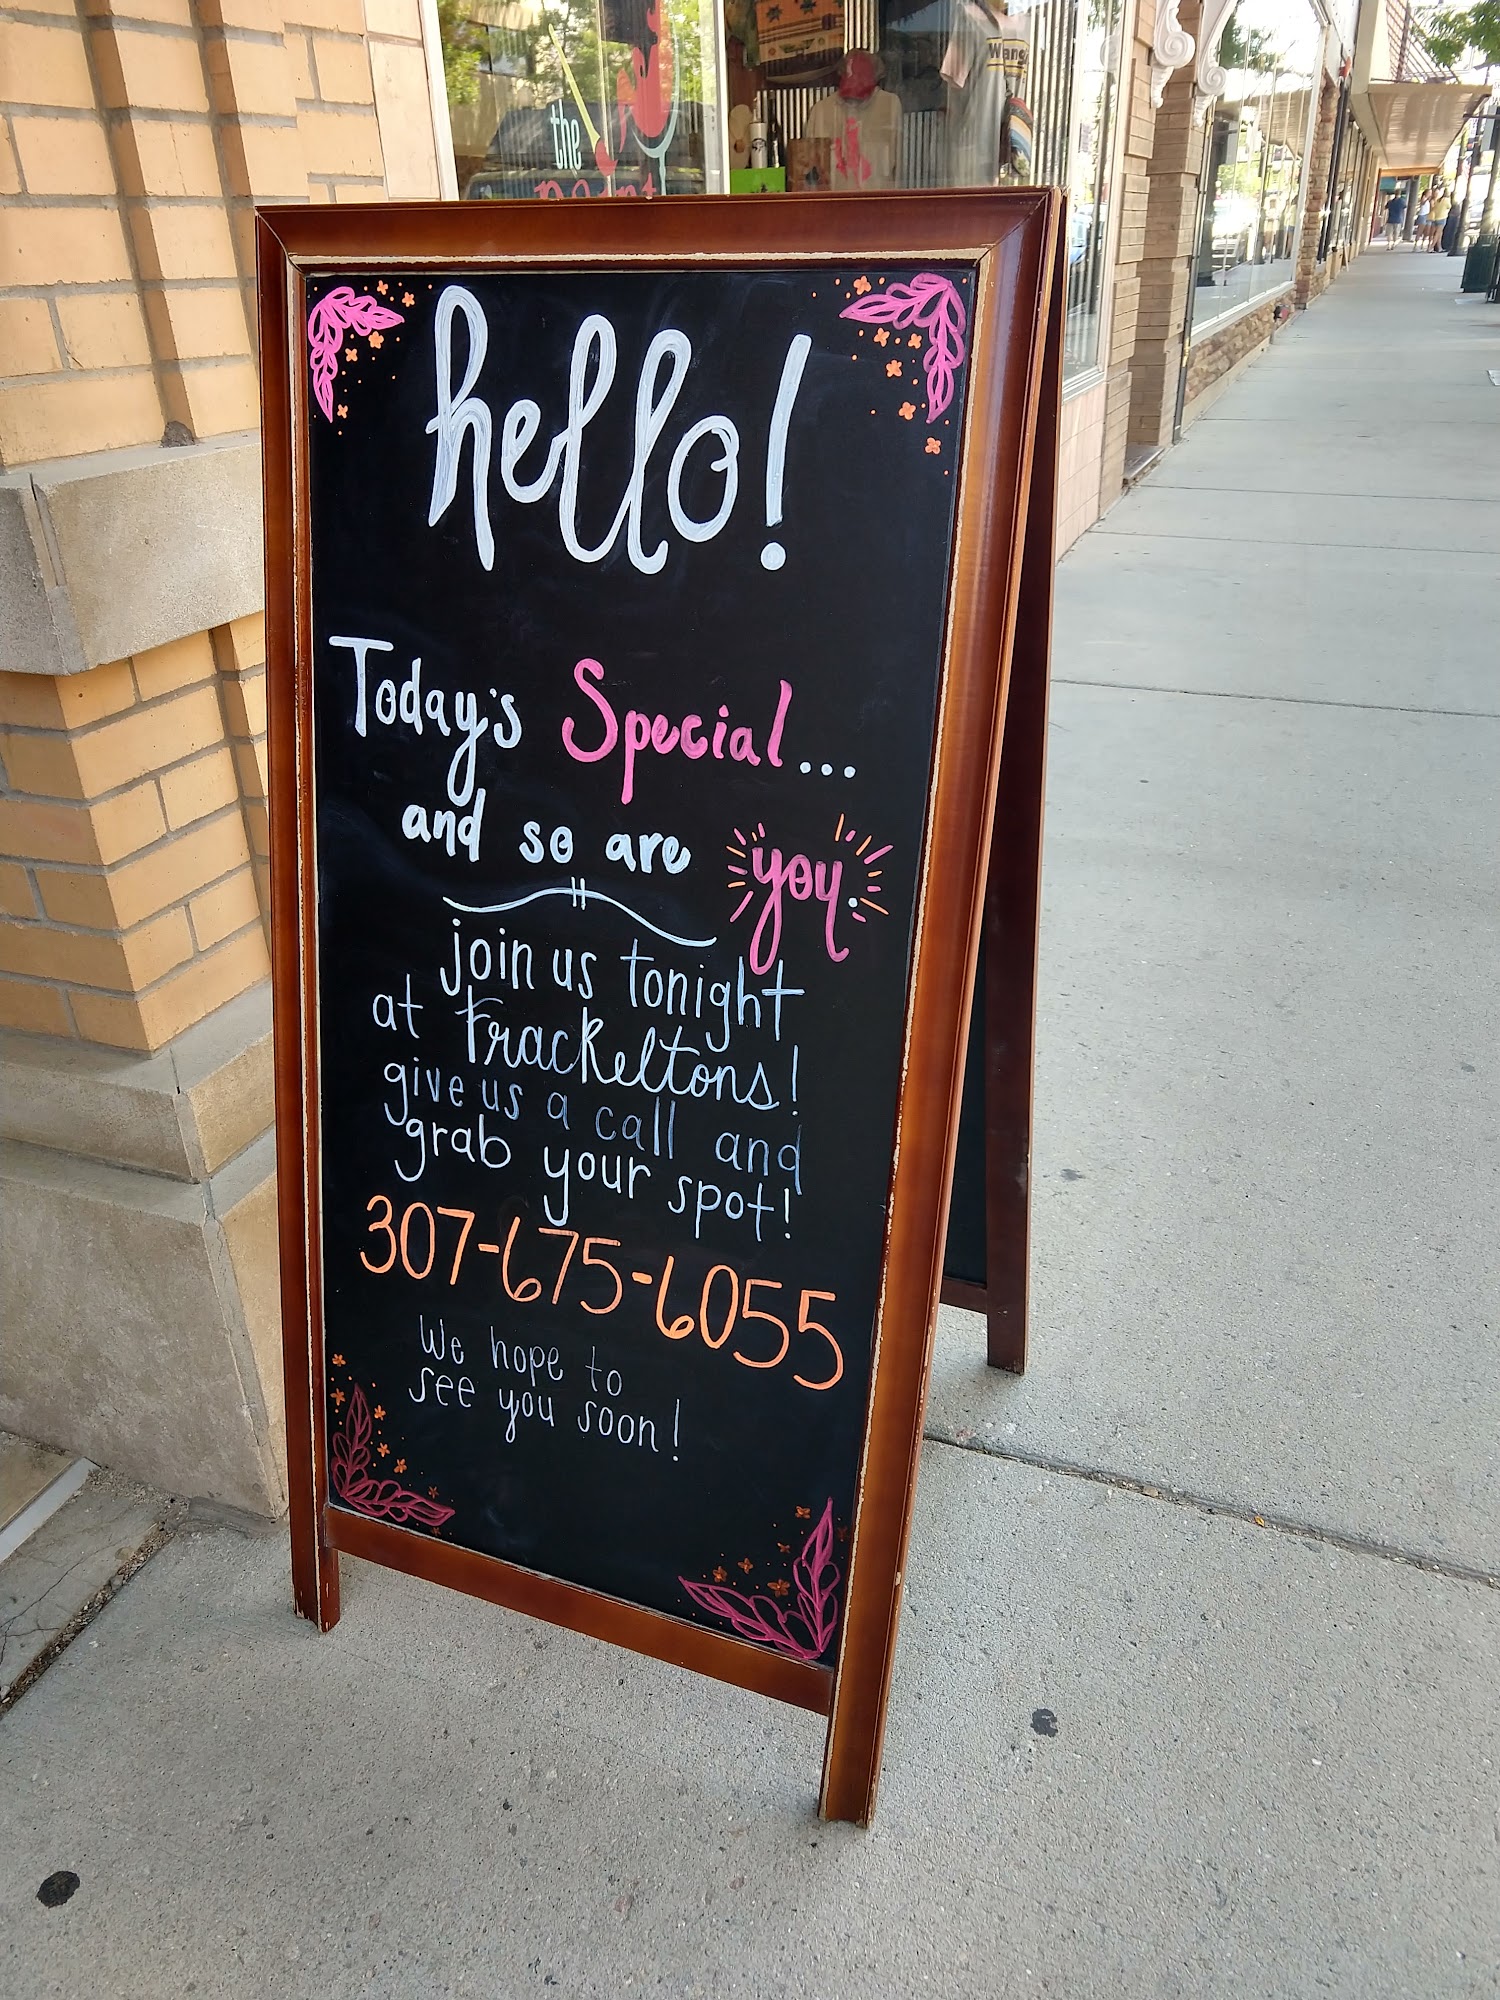 the
Paint
Wang
hello!
Today's Special...
and so are you.
join us tonight
at FracKeltons!
give us a call and
grab your spot!
307-675-6055
We hope to
see you soon!